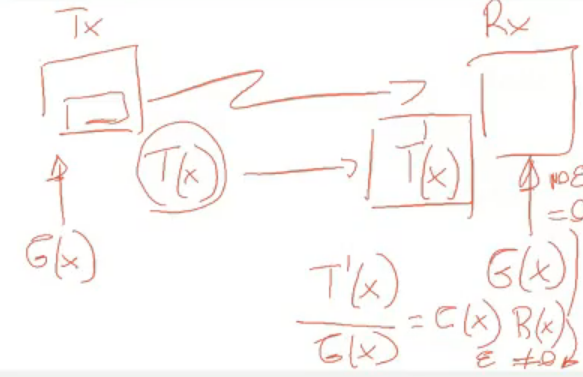 Tx
Rx
T(x)
T'(x)
G(x)
G(x)
NO E
= 0
T'(x) / G(x) = C(x) R(x)
E ≠ 0